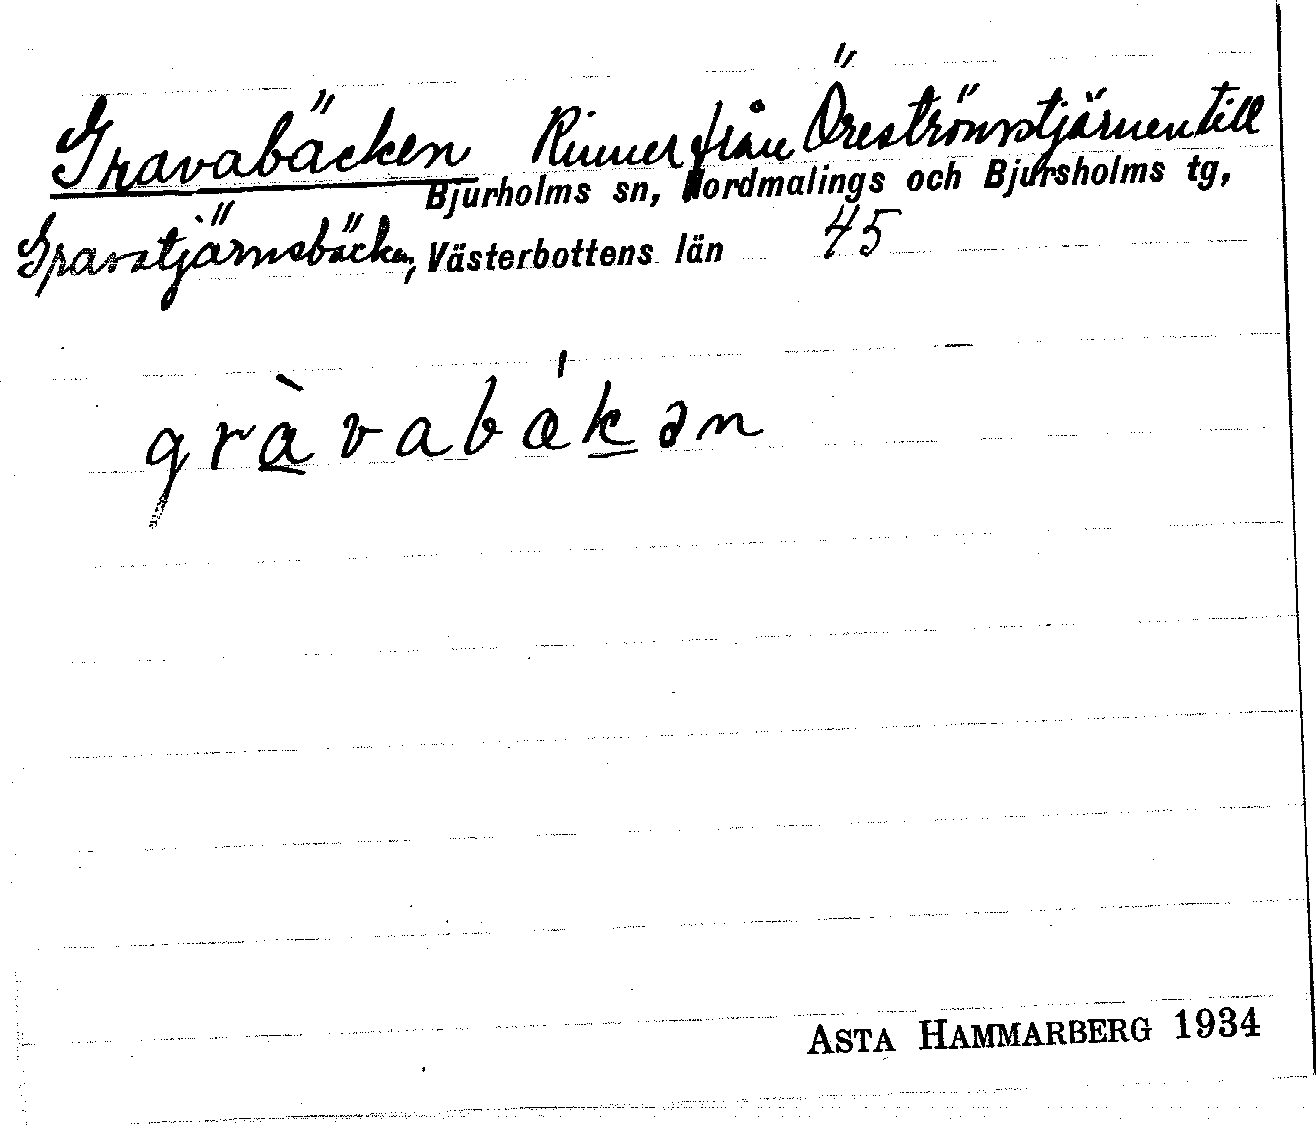 Gravabäcken Rinner från Öreströmstjärnen till
Bjurholms sn, Nordmalings och Bjursholms tg,
Gravstjärnsbäcken, Västerbottens län 45
gràvabákən
ASTA HAMMARBERG 1934